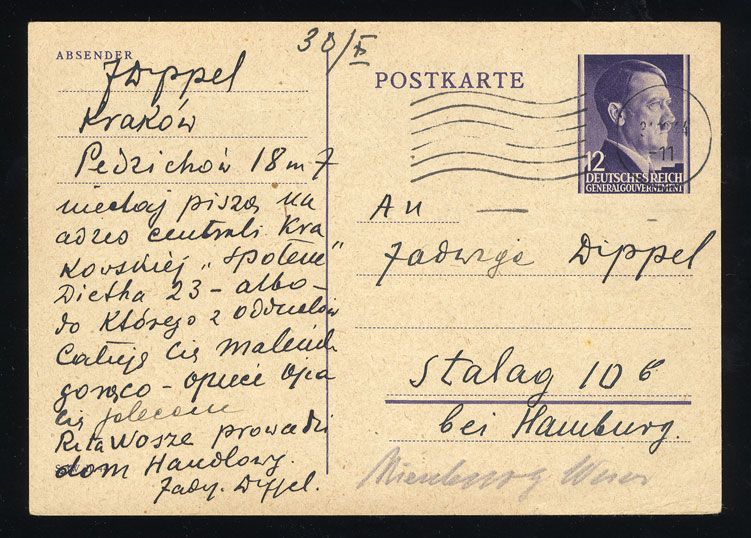 30/X
ABSENDER
J Dippel
Kraków
Pedzichów 18 m 7
niechaj piszą na
adres centrali Kra
kovskiej „Społem"
Dietla 23 - albo -
do którego z oddziałów
Całuję Cię maleńk
gorąco - opiece Ojca
Cię polecam
Rita Wosze prowadzi
dom Handlowy.
Jadw. Dippel.
POSTKARTE
12
DEUTSCHES REICH
GENERALGOUVERNEMENT
-11
An
Jadwiga Dippel
Stalag 10 b
bei Hamburg.
Nienburg Weser